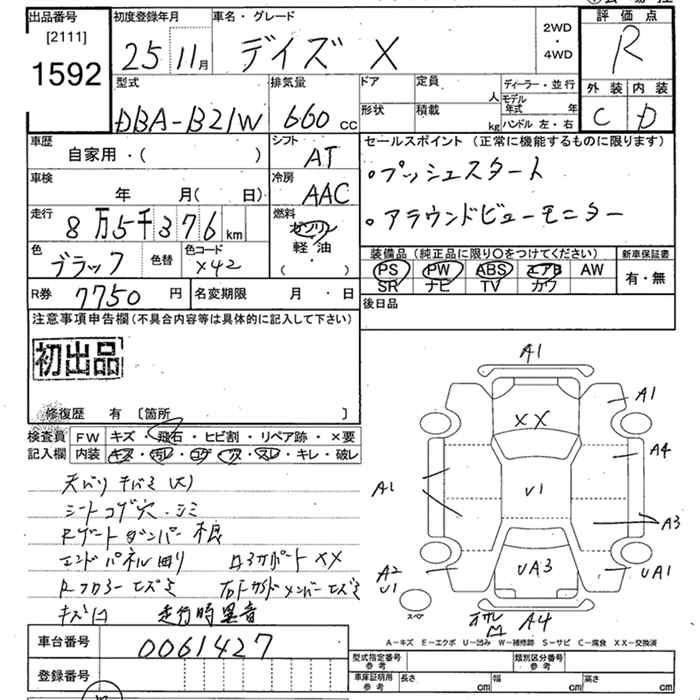 出品番号 初度登録年月 車名・グレード 評価点
[2111]
1592 25 11月 デイズ X 2WD・4WD R
型式 排気量 ドア 定員 人 ディーラー・並行 外装 内装
DBA-B21W 660 cc 形状 積載 kg モデル年式 年 ハンドル 左・右 C D
車歴 シフト セールスポイント (正常に機能するものに限ります)
自家用・( ) AT ・プッシュスタート
車検 冷房
年 月( 日) AAC ・アラウンドビューモニター
走行 燃料
8万5千376km ガソリン
色 色替 色コード 軽油 装備品 (純正品に限り○をつけてください) 新車保証書
ブラック X42 ・( ) PS PW ABS エアB AW 有・無
SR ナビ TV カワ
R券 7750円 名変期限 月・日 後日品
注意事項申告欄(不具合内容等は具体的に記入して下さい)
初出品
修復歴 有 [箇所 ]
検査員 FW キズ・飛石・ヒビ割・リペア跡・×要
記入欄 内装 キズ・汚レ・コゲ・穴・スレ・キレ・破レ
シートコゲ穴・シミ
Rゲートダンパー不良
走行時異音
車台番号 0061427
登録番号
A1
A1
XX
A4
A1
U1
A3
A2
U1
UA3
UA1
スペア
A4
A-キズ E-エクボ U-凹み W-補修跡 S-サビ C-腐食 XX-交換済
型式指定番号 参考 類別区分番号 参考
車庫証明用 参考 長さ cm 幅 cm 高さ cm